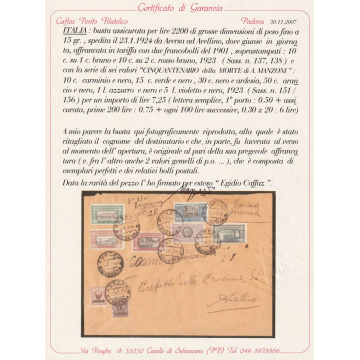 Certificato di Garanzia
Caffaz Perito Filatelico Padova 30.11.2007
ITALIA : busta assicurata per lire 2200 di grosse dimensioni di peso fino a
15 gr., spedita il 23.1.1924 da Aversa ad Avellino, dove giunse in giorna
ta, affrancata in tariffa con due francobolli del 1901, soprastampati : 10
c. su 1 c. bruno e 10 c. su 2 c. rosso bruno, 1923 ( Sass. n. 137, 138 ) e
con la serie di sei valori "CINQUANTENARIO della MORTE di A. MANZONI" :
10 c. carminio e nero, 15 c. verde e nero, 30 c. nero e ardesia, 50 c. aran
cio e nero, 1 l. azzurro e nero e 5 l. violetto e nero, 1923 ( Sass. n. 151/
156 ) per un importo di lire 7,25 ( lettera semplice, 1° porto : 0.50 + assi
curata, prime 200 lire : 0.75 + ogni 100 lire successive, 0.30 x 20 : 6 lire)
A mio parere la busta qui fotograficamente riprodotta, alla quale è stato
ritagliato il cognome del destinatario e che, in parte, fu lacerata al verso
al momento dell' apertura, è originale al pari della sua pregevole affranca
tura ( e. fra l' altro anche 2 valori gemelli di p.o. ... ), che è composta di
esemplari perfetti e dei relativi bolli postali.
Data la rarità del pezzo l' ho firmato per esteso " Egidio Caffaz ".
Avellino
Via Perghe, 16 35030 Caselle di Selvazzano (PD) Tel 049 8978666